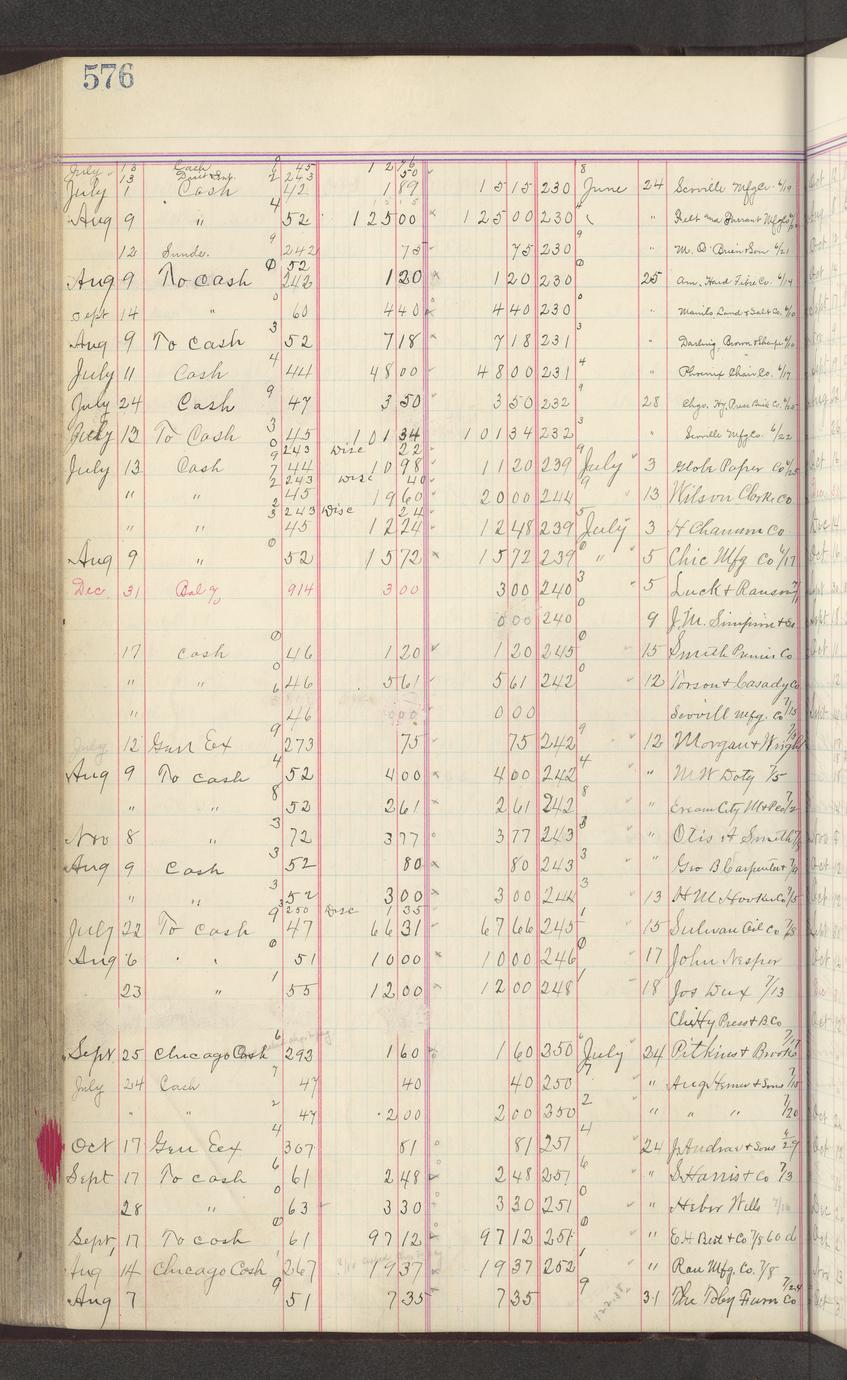 576
July 13 Cash 9 45 12 76
13 2 243 50
July 1 Cash 42 1 89 15 15 230 June 24 Scoville Mfg Co 6/19
Aug 9 " 4 52 125 00 125 00 230 " Mfg Co
12 Sunds. 9 242 75 75 230 9 " M. O'Brien & Son 6/21
Aug 9 To Cash 0 52 242 1 20 1 20 230 0 25 Am. Hard Fibre Co. 6/14
Sept 14 " 0 60 4 40 4 40 230 0 " Manilo Land & Salt Co. 6/10
Aug 9 To Cash 3 52 7 18 7 18 231 3 " Darling, Brown & Sharpe 6/10
July 11 Cash 4 44 48 00 48 00 231 4 " Phoenix Chair Co. 6/17
July 24 Cash 9 47 3 50 3 50 232 9 28 Chgo. Hy. Press Brick Co.
July 13 To Cash 3 45 101 34 101 34 232 3 " Scoville Mfg Co. 6/22
0 243 Disc 22
July 13 Cash 9 44 10 98 11 20 239 9 July 3 Globe Paper Co
7 243 Disc 40
" " 2 45 19 60 20 00 244 9 " 13 Wilson Clarke Co
2 243 Disc 24
" " 3 45 12 24 12 48 239 5 July 3 H Channon Co
Aug 9 " 0 52 15 72 15 72 239 0 " 5 Chic Mfg Co 6/17
Dec. 31 Bal % 914 3 00 3 00 240 3 " 5 Luck & Ranson
0 00 240 0 9 J. M. Simpson & Co
17 Cash 0 46 1 20 1 20 245 0 15 Smith Premier Co
" " 0 46 5 61 5 61 242 0 " 12 Torson & Casady Co
" 6 46 0 00 0 00 Scovill Mfg. Co 7/15
July 12 Gen Ex 9 273 75 75 242 9 " 12 Morgan & Wright
Aug 9 To Cash 4 52 4 00 4 00 242 4 " " M W Doty 7/5
" " 8 52 2 61 2 61 242 8 " " Cream City
Nov 8 " 3 72 3 77 3 77 243 3 " " Otis A Smith
Aug 9 Cash 3 52 80 80 243 3 " " Geo B Carpenter
" " 3 52 3 00 3 00 244 3 13 H M Hooker Co 7/5
3 250 Disc 1 35
July 22 To Cash 9 47 66 31 67 66 245 1 15 Sullivan Oil Co 7/8
Aug 6 " " 0 51 10 00 10 00 246 0 17 John Nesper
23 " 1 55 12 00 12 00 248 1 18 Jos Dux 7/13
Chitty Press & B Co
Sept 25 Chicago Cash 6 293 1 60 1 60 350 6 July 24 Pitkins & Brooks 7/17
July 24 Cash 7 47 40 40 250 7 " Aug Hemer & Sons 7/15
" " 2 47 2 00 2 00 350 2 " " " 7/20
Oct 17 Gen Eex 4 307 81 81 251 4 24 J. Andrae & Sons 6/29
Sept 17 To Cash 6 61 2 48 2 48 251 6 " S Harris & Co 7/3
28 " 0 63 3 30 3 30 251 0 " Heber Wells
Sept, 17 To Cash 0 61 97 12 97 12 251 0 " E H Best & Co 7/8 60 d
Aug 14 Chicago Cash 1 267 19 37 19 37 252 1 " Rau Mfg. Co. 7/8
Aug 7 9 51 7 35 7 35 9 31 The Tobey Furn Co 7/24